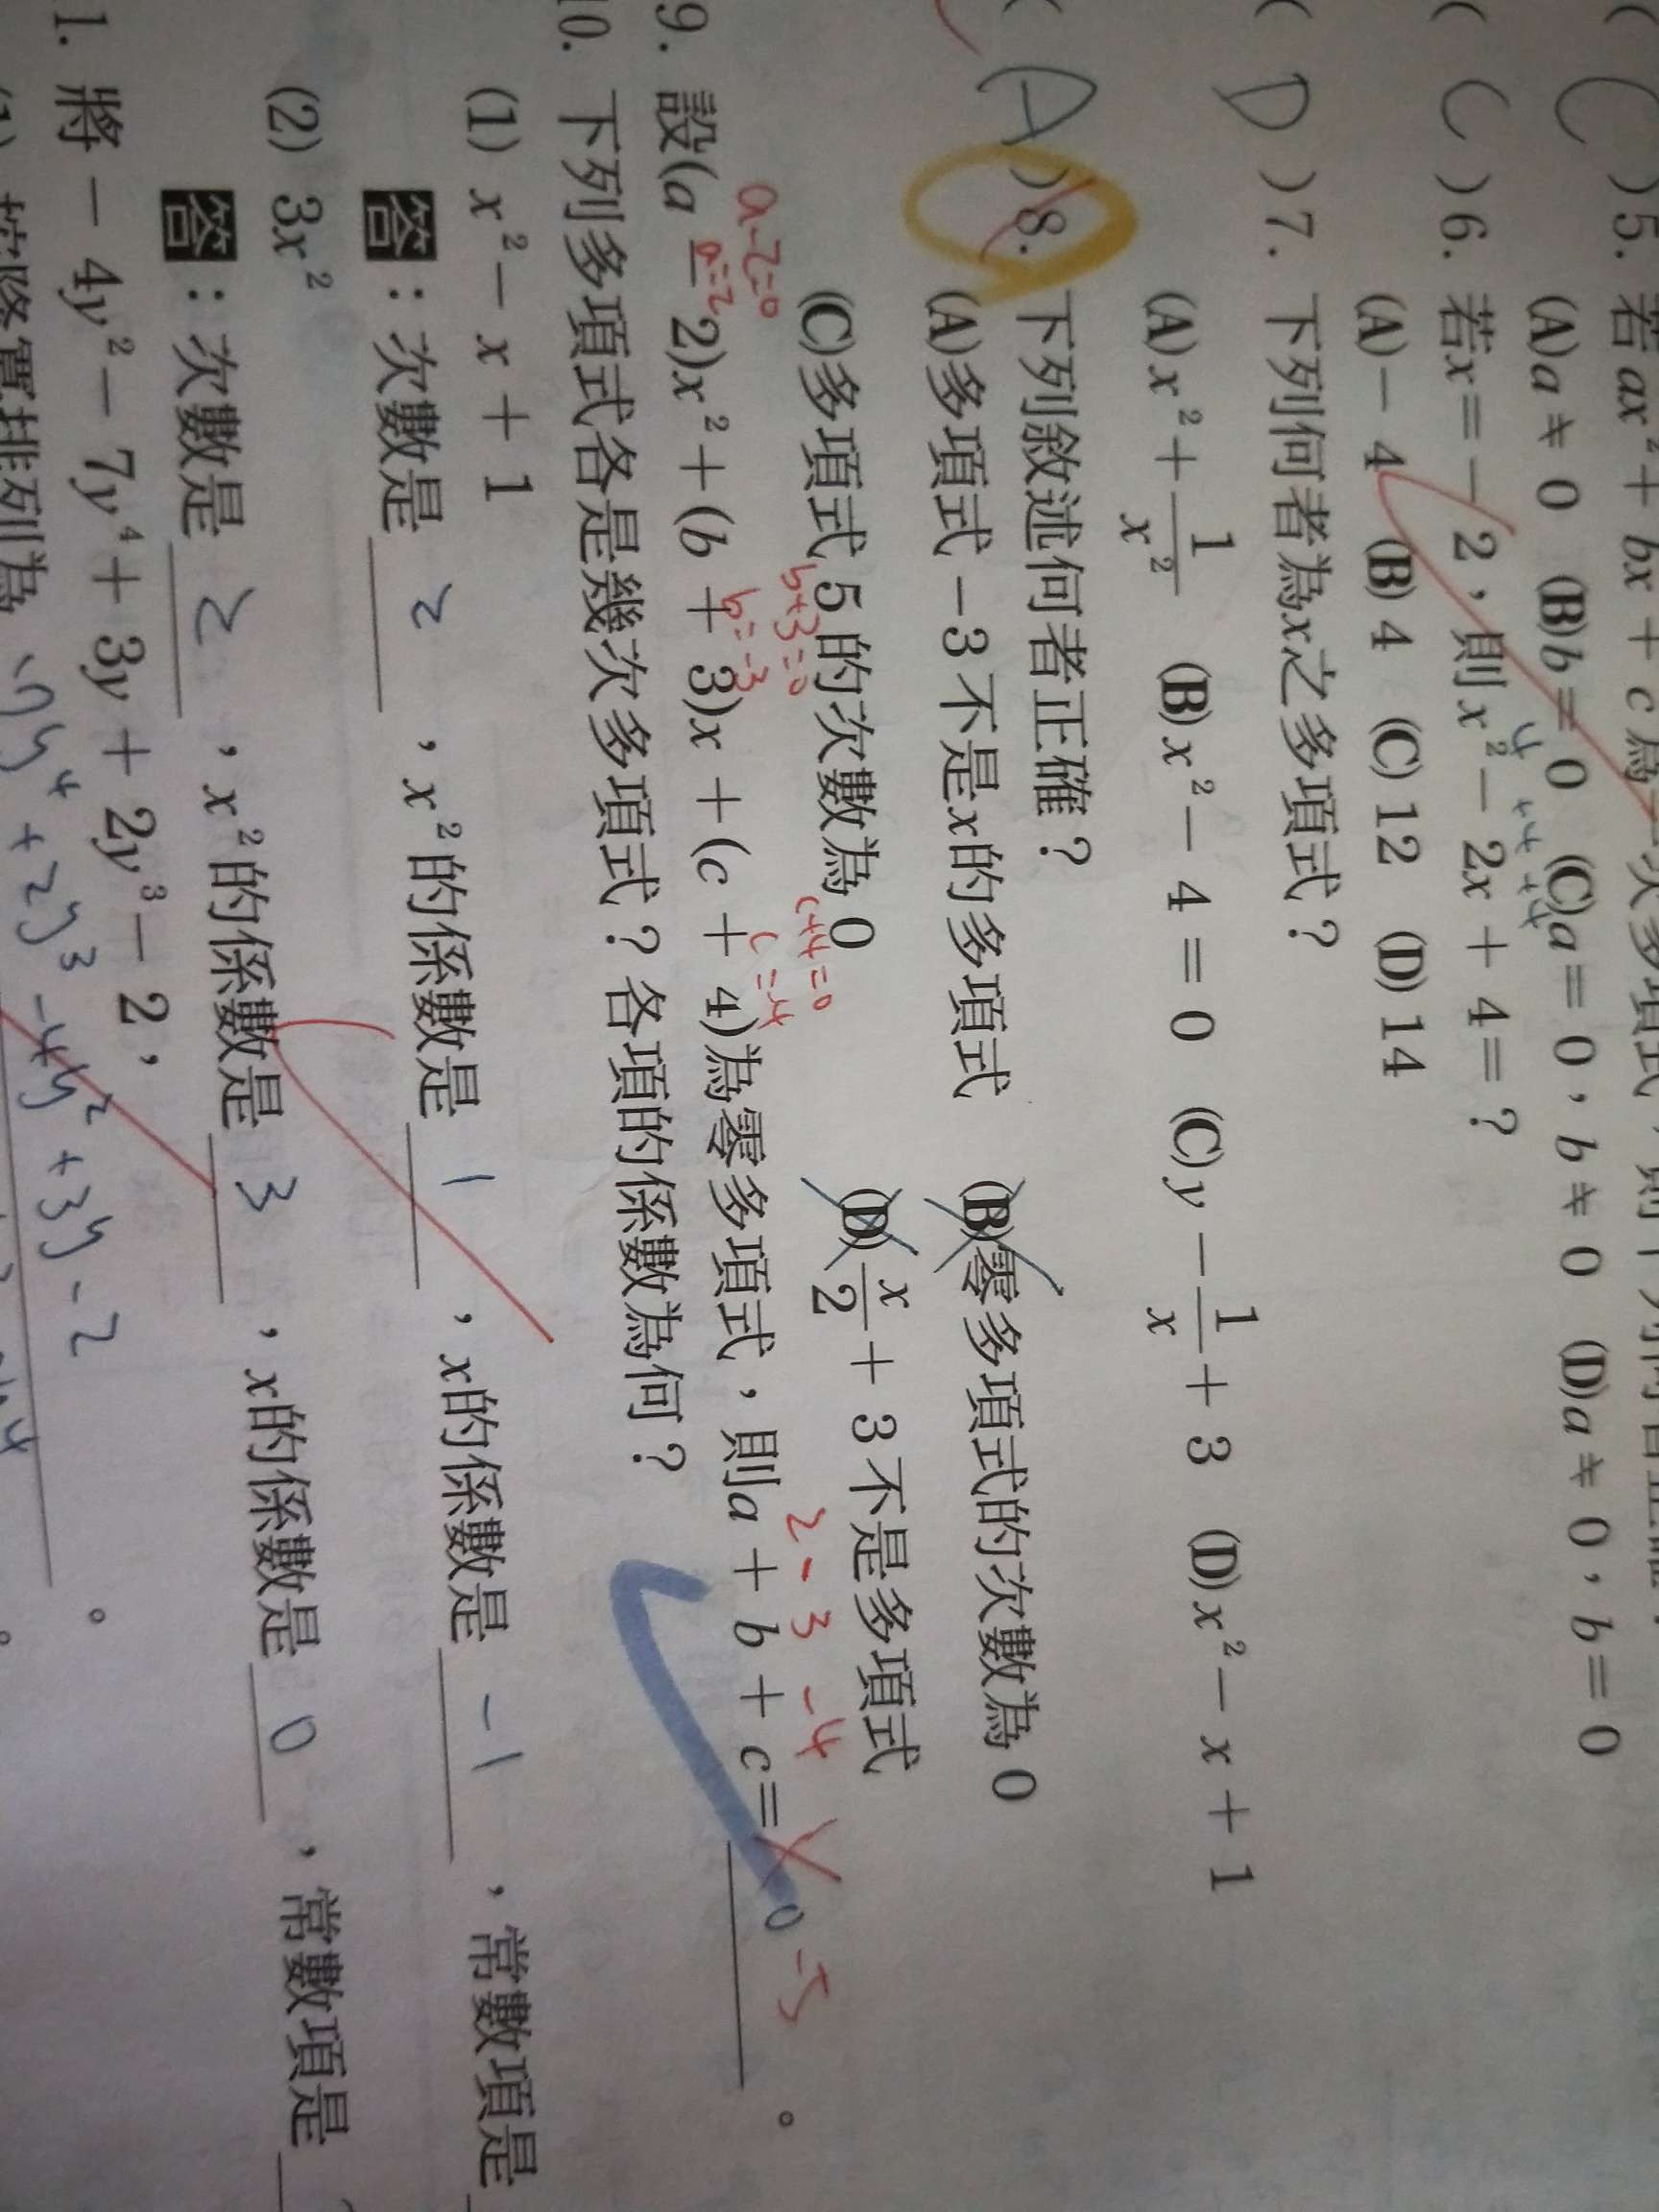 ( C ) 5. 若ax²＋bx＋c為一次多項式，則下列何者正確？
(A)a≠0 (B)b＝0 (C)a＝0，b≠0 (D)a≠0，b＝0
4 +4 +4
( C ) 6. 若x＝－2，則x²－2x＋4＝？
(A)－4 (B)4 (C)12 (D)14
( D ) 7. 下列何者為x之多項式？
(A)x²＋1/x² (B)x²－4＝0 (C)y－1/x＋3 (D)x²－x＋1
( A ) 8. 下列敘述何者正確？
(A)多項式－3不是x的多項式 (B)零多項式的次數為0
(C)多項式5的次數為0 (D)x/2＋3不是多項式
a-2=0 b+3=0 c+4=0
a=2 b=-3 c=-4 2-3-4
9. 設(a－2)x²＋(b＋3)x＋(c＋4)為零多項式，則a＋b＋c＝ 0 -5 。
10. 下列多項式各是幾次多項式？各項的係數為何？
(1) x²－x＋1
答：次數是 2 ，x²的係數是 1 ，x的係數是 -1 ，常數項是
(2) 3x²
答：次數是 2 ，x²的係數是 3 ，x的係數是 0 ，常數項是
1. 將－4y²－7y⁴＋3y＋2y³－2，
(1) 按降冪排列為 -7y⁴+2y³-4y²+3y-2 。